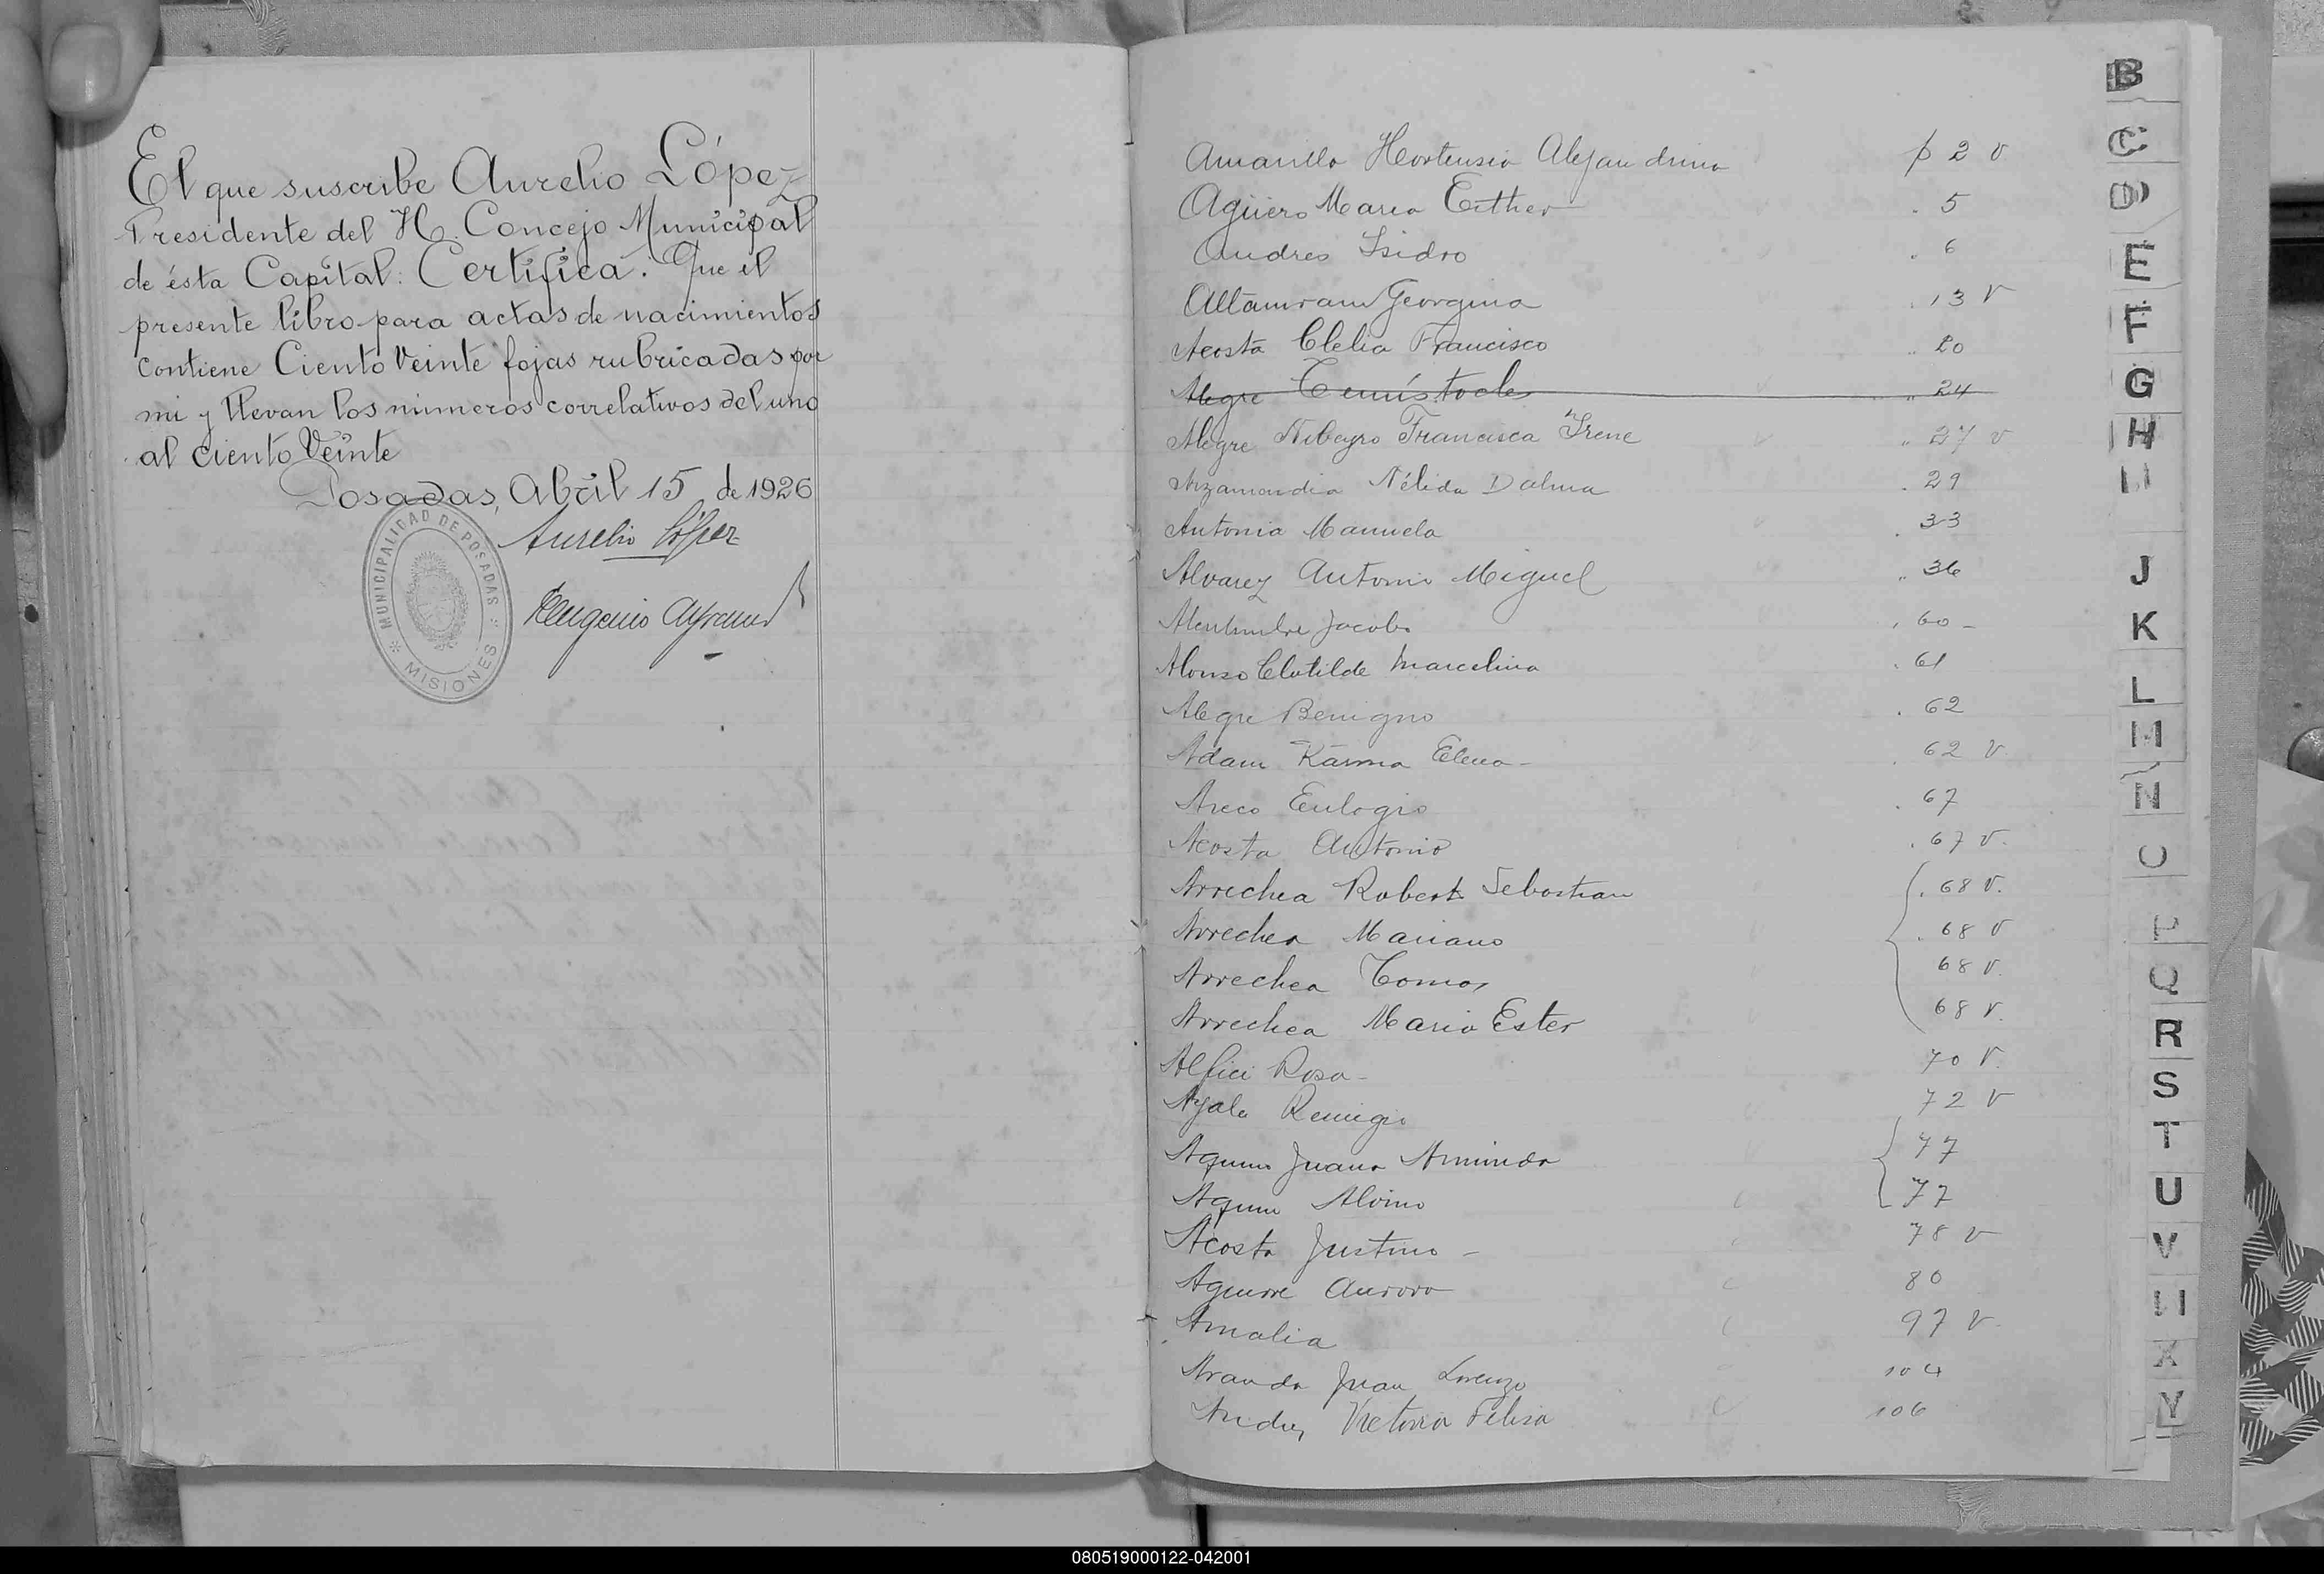 El que suscribe Aurelio López
Presidente del H. Concejo Municipal
de ésta Capital: Certifica: Que el
presente libro para actas de nacimientos
contiene Ciento Veinte fojas rubricadas por
mi y llevan los números correlativos del uno
al ciento Veinte
Posadas, Abril 15 de 1926
Aurelio López
MUNICIPALIDAD DE POSADAS
MISIONES
Eugenio
Amarilla Hortensia Alejandrina p 2 v
Agüero Maria Esther . 5
Andres Isidro . 6
Altamirano Georgina . 13 v
Acosta Clelia Francisco .. 20
Alegre Temístocles .. 24
Alegre Ribeyro Francisca Irene .. 27 v
Arzamendia Nélida Dalma . 29
Antonia Manuela . 33
Alvarez Antonio Miguel .. 36
Jacobo . 60 -
Alonso Clotilde Marcelina . 61
Alegre Benigno . 62
Adam Karina Elena - . 62 v
Areco Eulogio . 67
Acosta Antonio . 67 v.
Arrechea Roberto Sebastian . 68 v.
Arrechea Mariano . 68 v
Arrechea Tomas 68 v.
Arrechea Maria Ester 68 v.
Alfici Rosa - 70 v.
Ayala Remigio 72 v
Aquino Juana Arminda 77
Aquino Alvino 77
Acosta Justino - 78 v
Aguirre Aurora 80
Amalia 97 v
Aranda Juan Lorenzo 104
Victoria Felisa 106
B
C
D
E
F
G
H
J
K
L
M
N
O
P
Q
R
S
T
U
V
X
Y
080519000122-042001